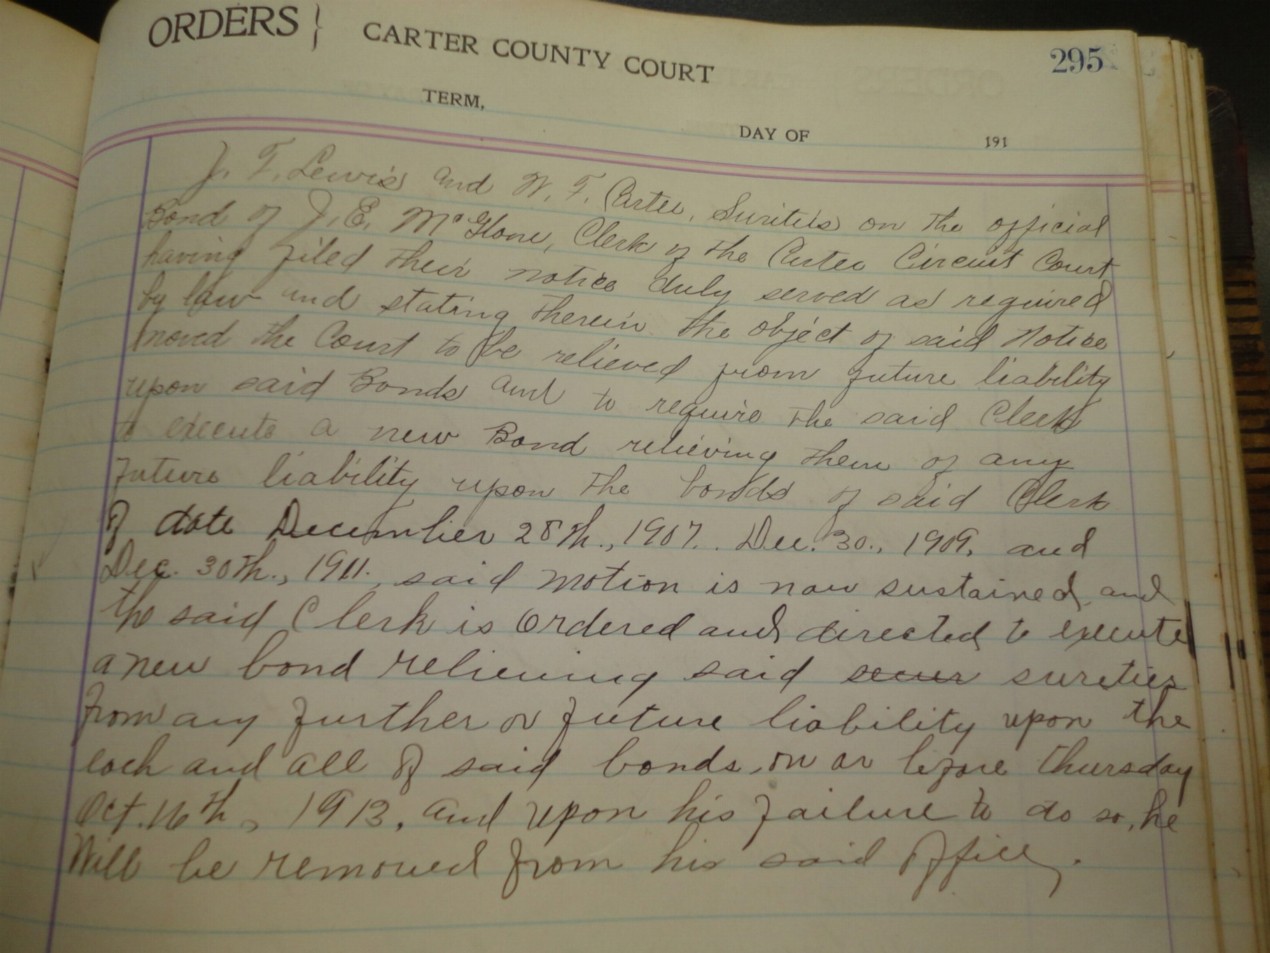 ORDERS } CARTER COUNTY COURT 295
TERM,
DAY OF 191
J. F. Lewis and W. F. Carter, Surities on the official
Bond of J. E. McGlone, Clerk of the Carter Circuit Court
having filed their notice duly served as required
by law and stating therein the object of said Notice
moved the Court to be relieved from future liability
upon said Bonds and to require the said Clerk
to execute a new Bond relieving them of any
future liability upon the bonds of said Clerk
of date December 28th., 1907. Dec. 30., 1909, and
Dec. 30th., 1911. said motion is now sustained, and
the said Clerk is ordered and directed to execute
a new bond relieving said secur sureties
From any further or future liability upon the
each and all of said bonds, on or before Thursday
Oct. 16th, 1913, and upon his failure to do so, he
Will be removed from his said office.